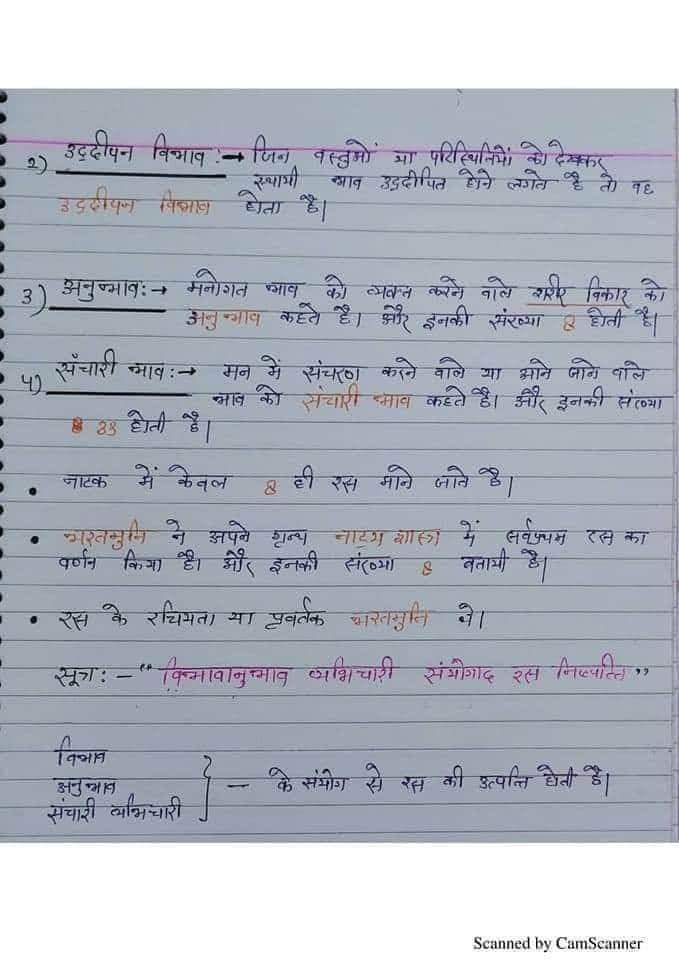 2) उद्दीपन विभाव :→ जिन वस्तुओं या परिस्थितियों को देखकर
स्थायी भाव उद्दीपित होने लगते है तो वह
उद्दीपन विभाव होता है।
3) अनुभाव :→ मनोगत भाव को व्यक्त करने वाले शरीर विकार को
अनुभाव कहते है। और इनकी संख्या 8 होती है।
4) संचारी भाव :→ मन में संचरण करने वाले या आने जाने वाले
भाव को संचारी भाव कहते है। और इनकी संख्या
33 होती है।
• नाटक में केवल 8 ही रस माने जाते है।
• भरतमुनि ने अपने ग्रन्थ नाट्य शास्त्र में सर्वप्रथम रस का
वर्णन किया है। और इनकी संख्या 8 बतायी है।
• रस के रचियता या प्रवर्तक भरतमुनि थे।
सूत्र: – “विभावानुभाव व्यभिचारी संयोगाद रस निष्पत्ति”
विभाव
अनुभाव } – के संयोग से रस की उत्पत्ति होती है।
संचारी व्यभिचारी
Scanned by CamScanner